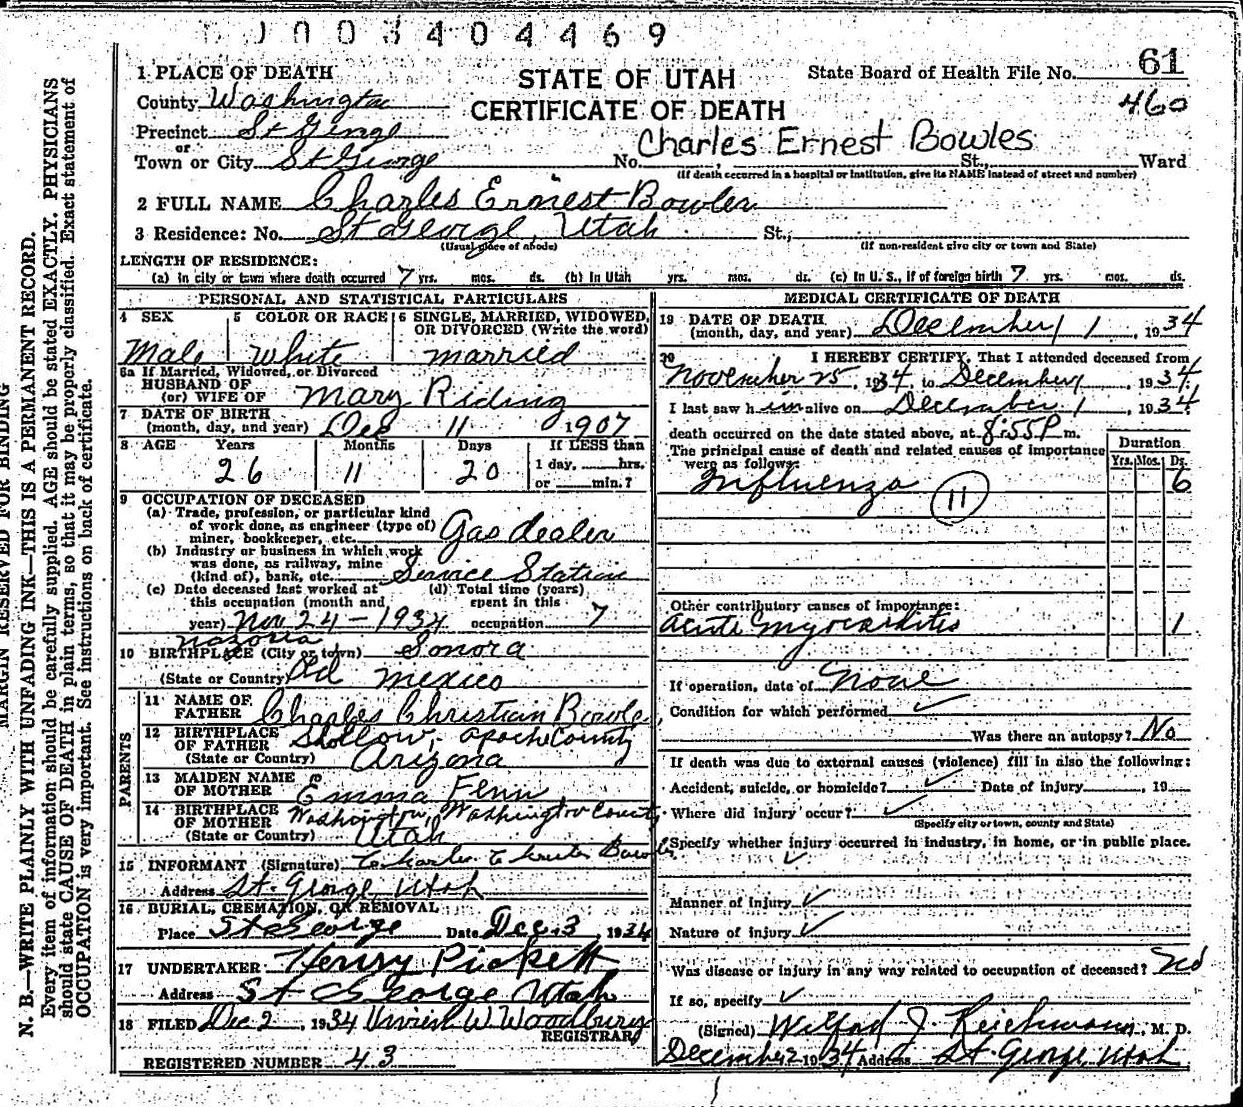 0003404469
61
1 PLACE OF DEATH
STATE OF UTAH
State Board of Health File No.
County Washington
CERTIFICATE OF DEATH
460
Precinct St George
or
Town or City St George
No. Charles Ernest Bowles St., Ward
(If death occurred in a hospital or institution, give its NAME instead of street and number)
2 FULL NAME Charles Ernest Bowler
3 Residence: No. St George, Utah St.,
(Usual place of abode)
(If non-resident give city or town and State)
LENGTH OF RESIDENCE:
(a) In city or town where death occurred 7 yrs. mos. ds. (b) In Utah yrs. mos. ds. (c) In U.S., if of foreign birth 7 yrs. mos. ds.
PERSONAL AND STATISTICAL PARTICULARS
4 SEX
Male
5 COLOR OR RACE
White
6 SINGLE, MARRIED, WIDOWED, OR DIVORCED (Write the word)
married
6a If Married, Widowed, or Divorced
HUSBAND OF
(or) WIFE OF Mary Riding
7 DATE OF BIRTH
(month, day, and year) Dec 11 1907
8 AGE Years Months Days If LESS than
26 11 20 1 day, hrs.
or min.?
9 OCCUPATION OF DECEASED
(a) Trade, profession, or particular kind
of work done, as engineer (type of)
miner, bookkeeper, etc. Gas dealer
(b) Industry or business in which work
was done, as railway, mine
(kind of), bank, etc. Service Station
(c) Date deceased last worked at
this occupation (month and
year) Nov 24-1934
(d) Total time (years)
spent in this
occupation 7
10 BIRTHPLACE (City or town) Sonora
(State or Country) Old Mexico
PARENTS
11 NAME OF
FATHER Charles Christian Bowler
12 BIRTHPLACE
OF FATHER
(State or Country) Apache County
Arizona
13 MAIDEN NAME
OF MOTHER Emma Fenn
14 BIRTHPLACE
OF MOTHER
(State or Country) Washington, Washington County
Utah
15 INFORMANT (Signature)
Address St. George Utah
16 BURIAL, CREMATION, OR REMOVAL
Place St George Date Dec. 3, 1934
17 UNDERTAKER Henry Pickett
Address St George Utah
18 FILED Dec 2, 1934 W Woodbury
REGISTRAR
REGISTERED NUMBER 43
MEDICAL CERTIFICATE OF DEATH
19 DATE OF DEATH
(month, day, and year) December 1 1934
20 I HEREBY CERTIFY, That I attended deceased from
November 25, 1934, to December 1, 1934
I last saw him alive on December 1, 1934
death occurred on the date stated above, at 8:55 P m.
The principal cause of death and related causes of importance
were as follows:
Duration
Yrs. Mos. Ds.
Influenza 11 6
Other contributory causes of importance:
Acute myocarditis 1
If operation, date of None
Condition for which performed
Was there an autopsy? No
If death was due to external causes (violence) fill in also the following:
Accident, suicide, or homicide? Date of injury, 19
Where did injury occur?
(Specify city or town, county and State)
Specify whether injury occurred in industry, in home, or in public place.
Manner of injury
Nature of injury
Was disease or injury in any way related to occupation of deceased? No
If so, specify
(Signed) Wilford J. Reichmann, M. D.
December 2 1934 Address St. George, Utah
MARGIN RESERVED FOR BINDING
N. B.—WRITE PLAINLY WITH UNFADING INK—THIS IS A PERMANENT RECORD.
Every item of information should be carefully supplied. AGE should be stated EXACTLY. PHYSICIANS
should state CAUSE OF DEATH in plain terms, so that it may be properly classified. Exact statement of
OCCUPATION is very important. See instructions on back of certificate.